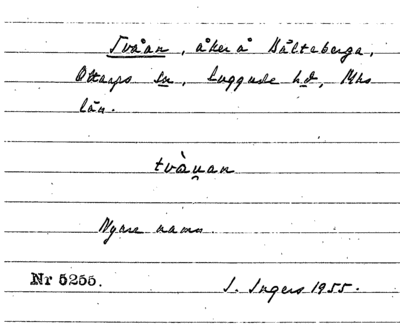 Tvåan, åker å Bålteberga,
Ottarps sn, Luggude hd, Mhs
län.
tvàu̯an
Nyare namn.
Nr 5255.
I. Ingers 1955.